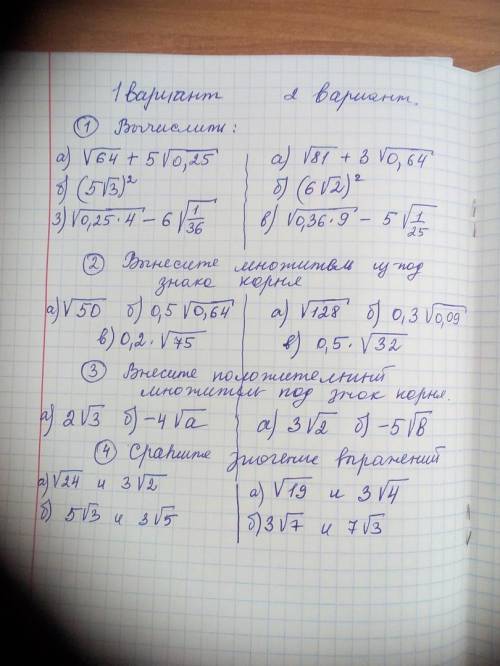 1 вариант 2 вариант.
① Вычислить:
а) √64 + 5√0,25 а) √81 + 3√0,64
б) (5√3)² б) (6√2)²
3) √0,25·4 − 6√1/36 в) √0,36·9 − 5√1/25
② Вынесите множитель из-под
знака корня
а) √50 б) 0,5√0,64 а) √128 б) 0,3√0,09
в) 0,2·√75 в) 0,5·√32
③ Внесите положительный
множитель под знак корня.
а) 2√3 б) −4√a а) 3√2 б) −5√b
④ Сравните значение выражений
а) √24 и 3√2 а) √19 и 3√4
б) 5√3 и 3√5 б) 3√7 и 7√3